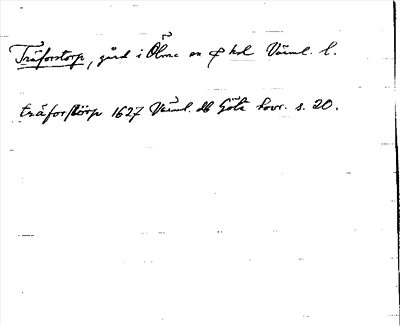 Träforstorp, gård i Ölme sn o hd Värml. l.
träforstörp 1627 Värml. db Göta hovr. s. 20.